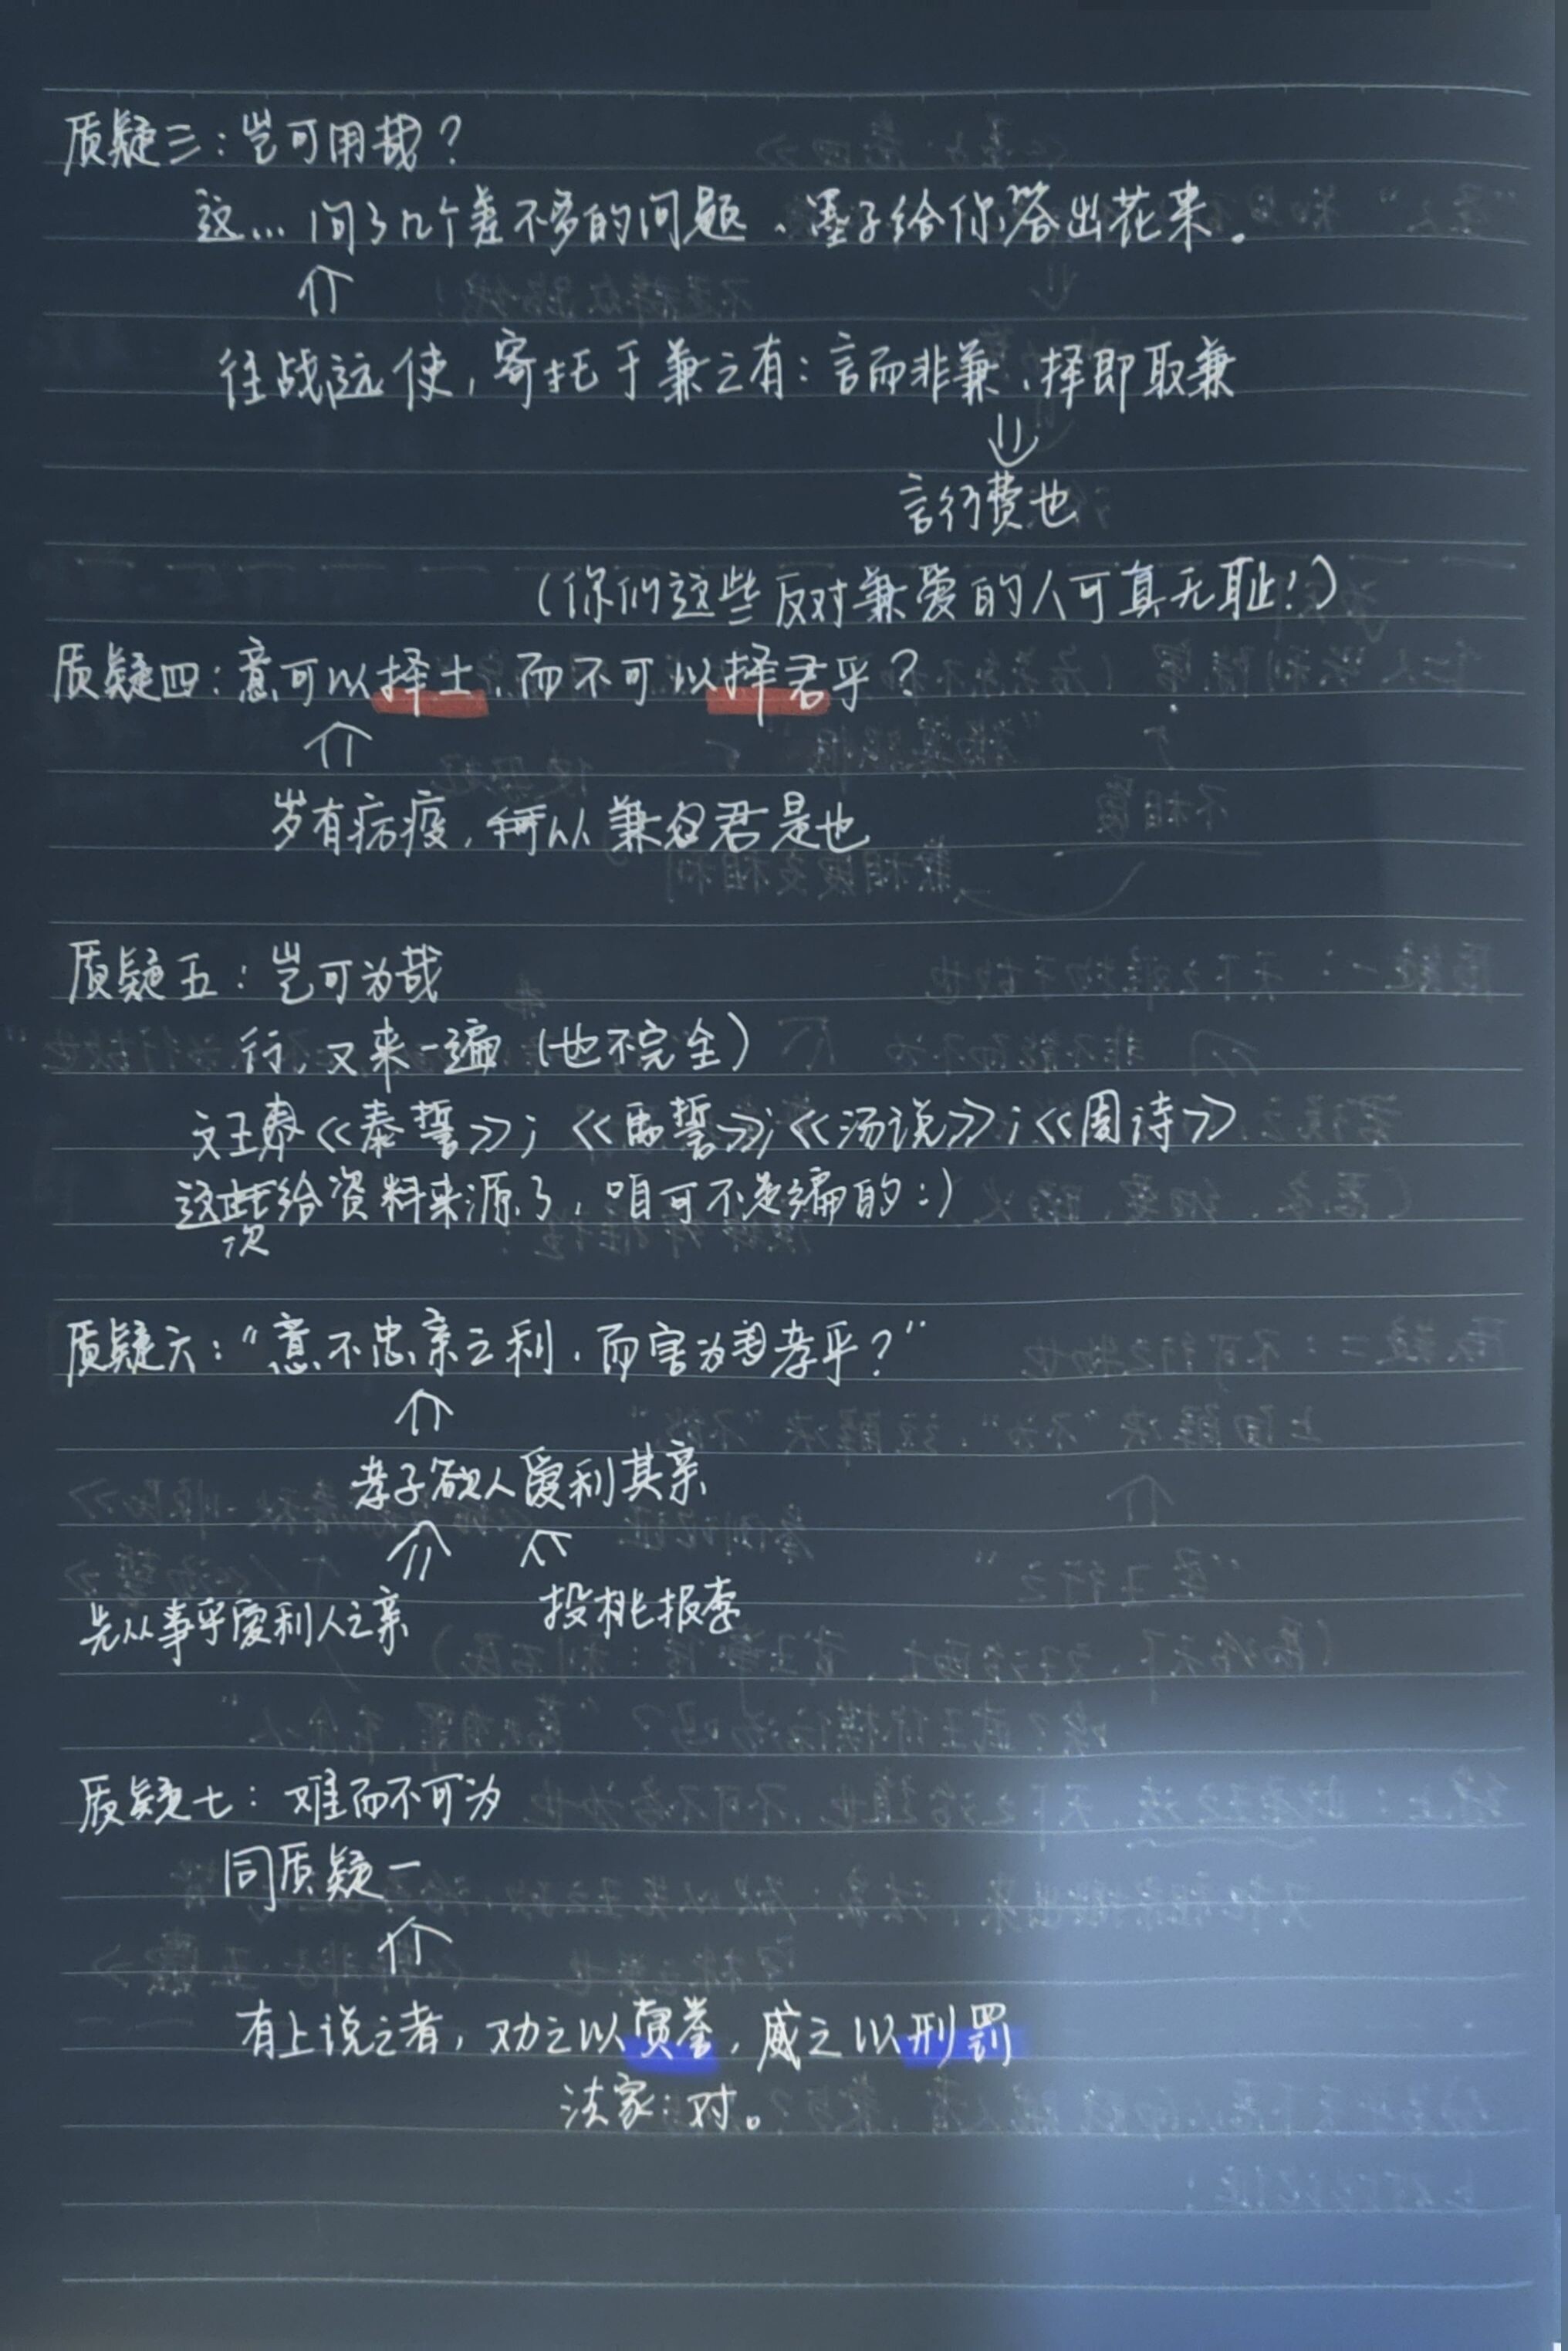 质疑三：岂可用哉？
这…问了几个差不多的问题、墨子给你答出花来。
往战远使，寄托于兼之有：言而非兼、择即取兼
言行费也
（你们这些反对兼爱的人可真无耻！）
质疑四：意可以择士、而不可以择君乎？
岁有疠疫，兼君是也
质疑五：岂可为哉
行，又来一遍（也不完全）
文王《泰誓》；《禹誓》；《汤说》；《周诗》
这次给资料来源了，咱可不是编的：）
质疑六：“意不忠亲之利、而害为孝乎？”
孝子欲人爱利其亲
先从事乎爱利人之亲 投桃报李
质疑七：难而不可为
同质疑一
有上说之者，劝之以赏誉，威之以刑罚
法家：对。